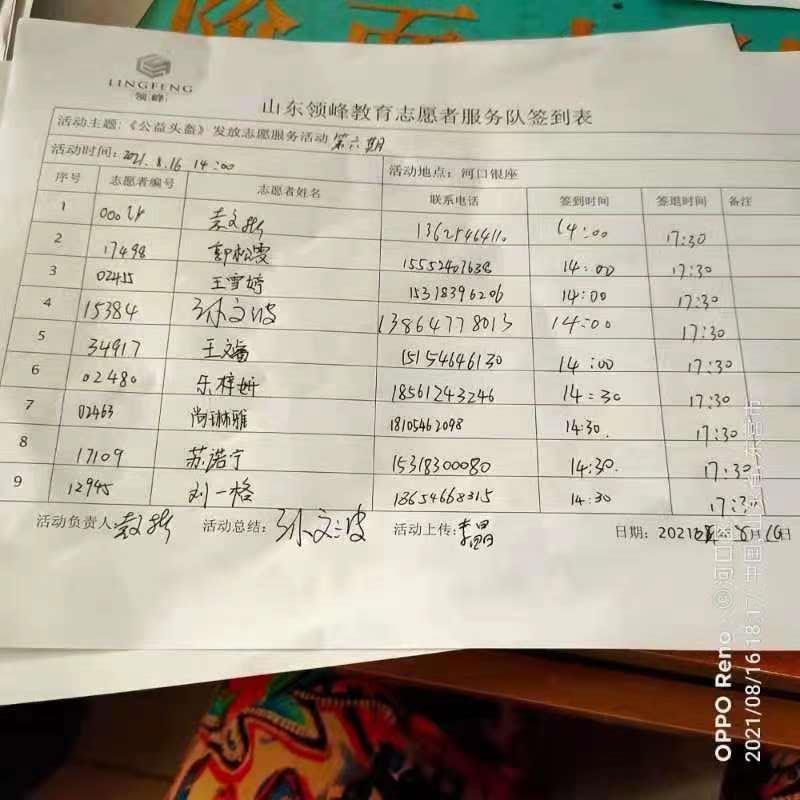 LINGFENG
领峰
山东领峰教育志愿者服务队签到表
活动主题:《公益头盔》发放志愿服务活动 第六期
活动时间: 2021.8.16 14:00 活动地点: 河口银座
序号 志愿者编号 志愿者姓名 联系电话 签到时间 签退时间 备注
1 14:00 17:30
2 17498 郭松雯 15552407638 14:00 17:30
3 02455 王雪婷 15318396206 14:00 17:30
4 15384 孙文波 13864778013 14:00 17:30
5 34917 15154646130 14:00 17:30
6 02480 乐梓妍 18561243246 14:30 17:30
7 02463 尚琳雅 18105462098 14:30. 17:30
8 17109 苏诺宁 15318300080 14:30. 17:30
9 12945 刘一格 18654668315 14:30 17:30
活动负责人: 活动总结: 孙文波 活动上传: 李昌 日期: 2021年8月16日
OPPO Reno
2021/08/16 18:17